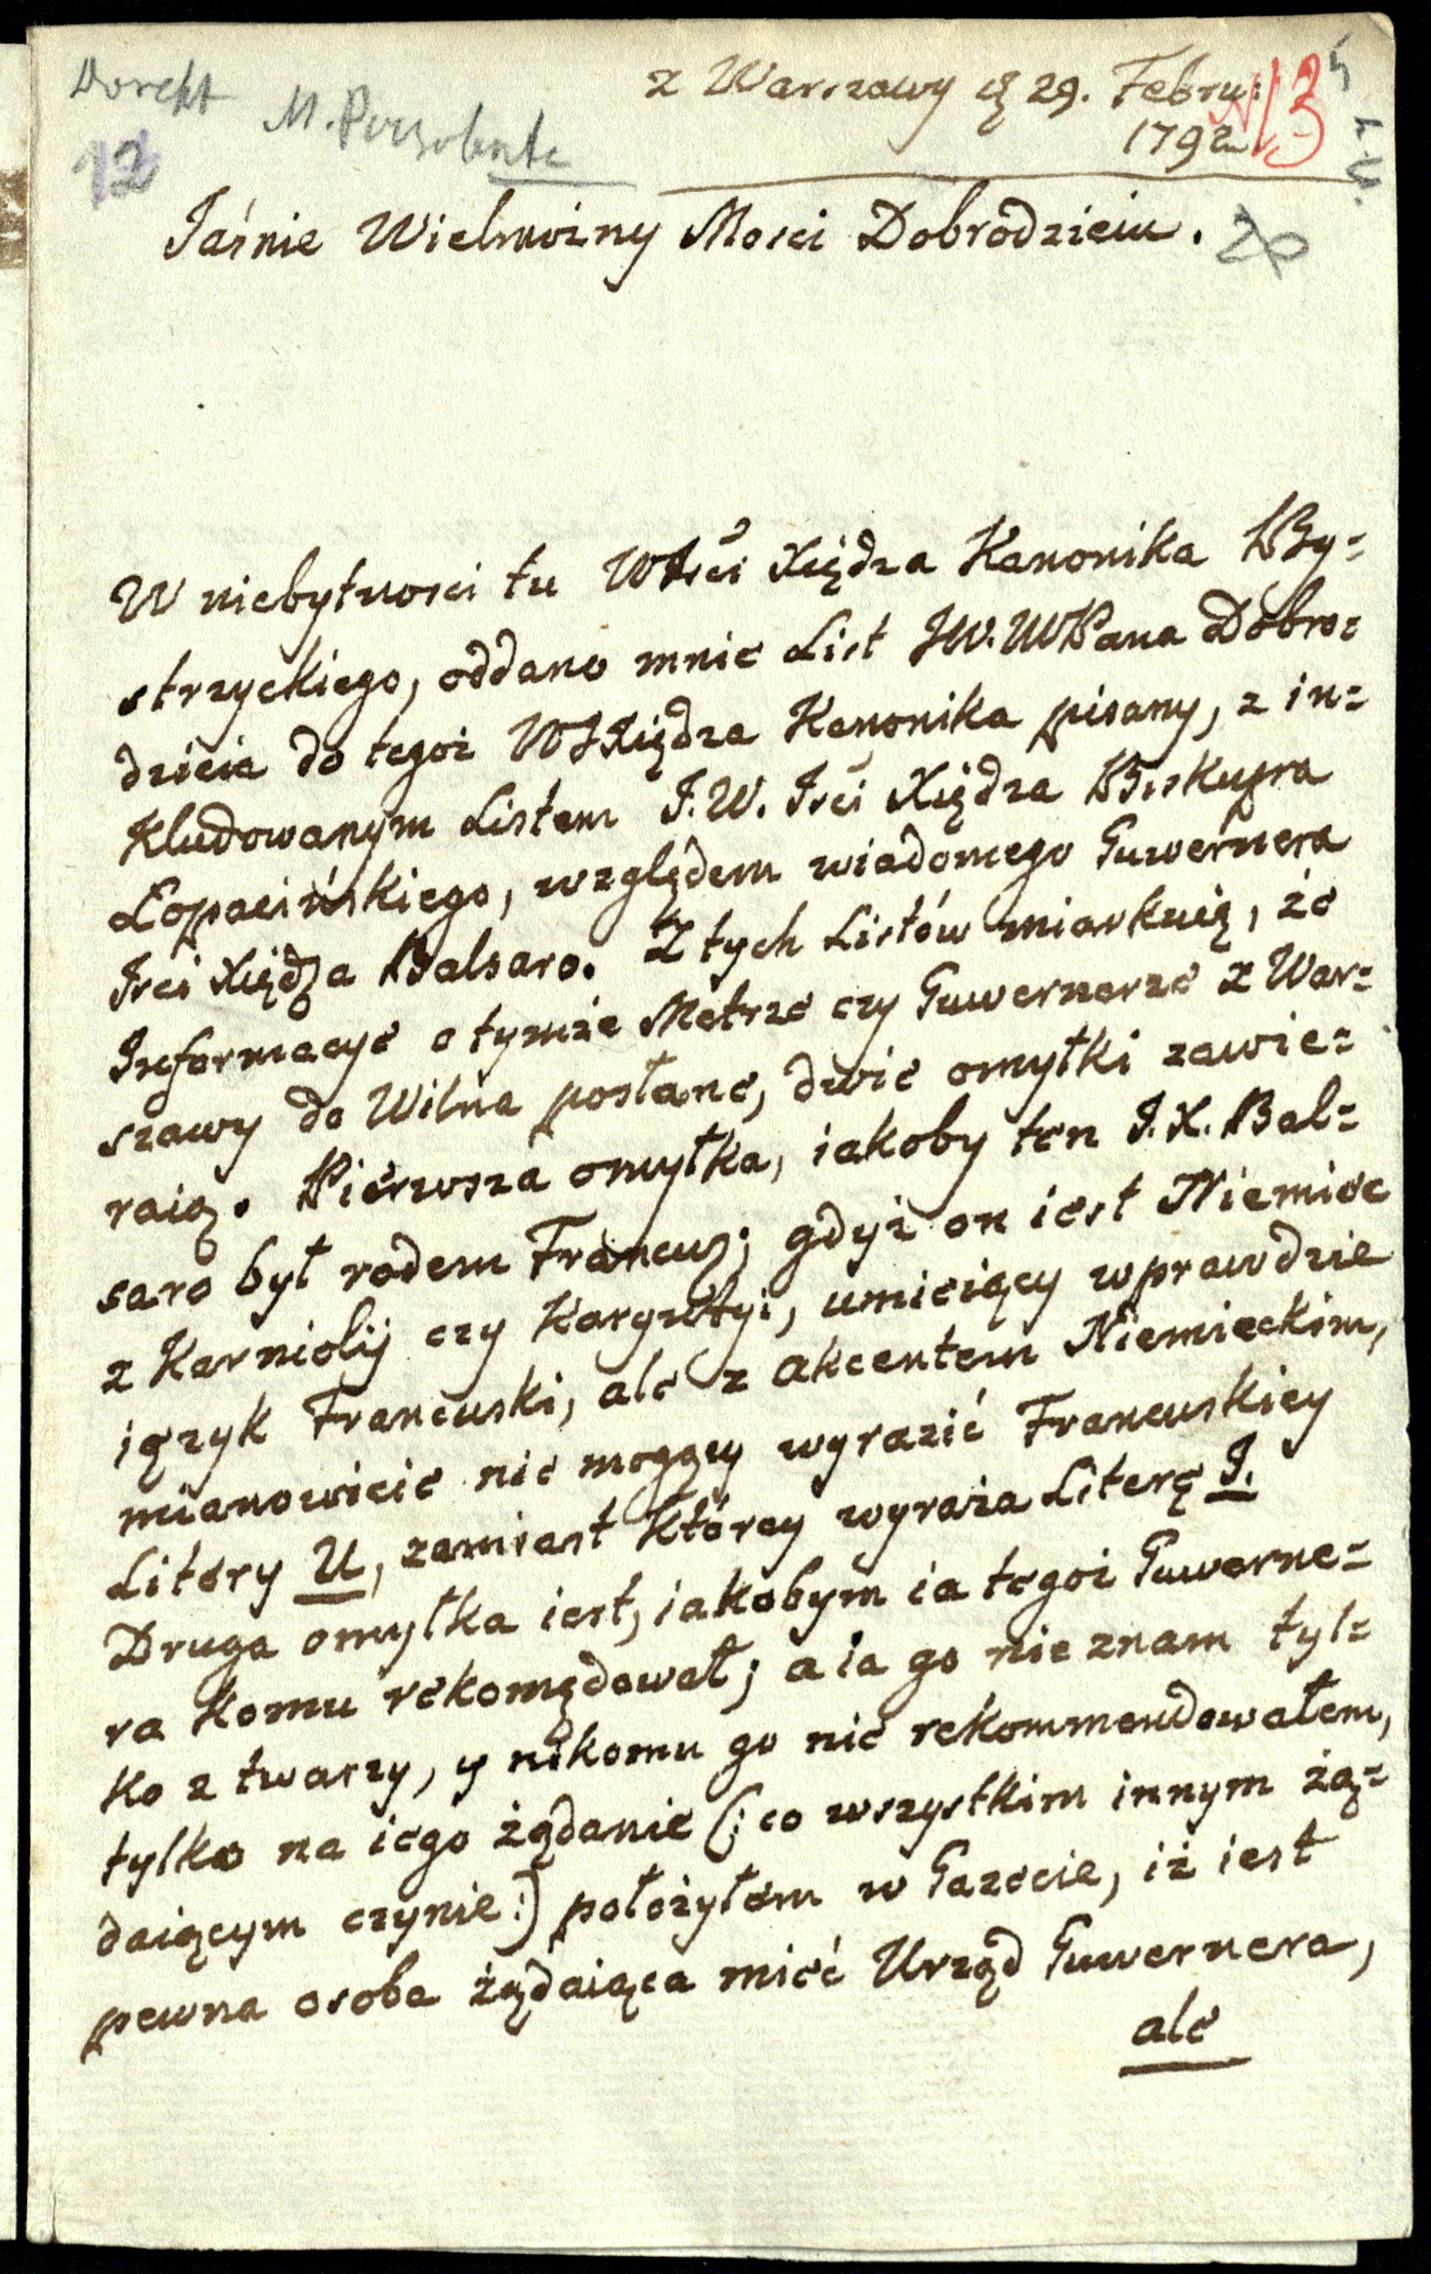 z Warszawy d 29. Febru:
1792 N 3
12
Jaśnie Wielmożny Mosci Dobrodzieiu.
W niebytnosci tu WJsci Xiędza Kanonika By=
strzyckiego, oddano mnie List JW. WPana Dobro=
dzieia do tegoż WJXiędza Kanonika pisany, z in=
kludowanym Listem J.W. Jsci Xiędza Biskupa
Łopacińskiego, względem wiadomego Guwernera
Jsci Xiędza Balsaro. Z tych Listów miarkuię, że
Informacye o tymże Metrze czy Guwernerze z War=
szawy do Wilna posłane, dwie omyłki zawie=
raią. Pierwsza omyłka, iakoby ten J.X. Bal=
saro był rodem Francuz; gdyż on iest Niemiec
z Karniolij czy Karyntyi, umieiący wprawdzie
ięzyk Francuski, ale z akcentem Niemieckim,
mianowicie nie mogący wyrazić Francuskiey
Litery U, zamiast którey wyraża Literę I.
Druga omyłka iest, iakobym ia tegoż Guwerne=
ra komu rekomędował; a ia go nie znam tyl=
ko z twarzy, y nikomu go nie rekommendowałem,
tylko na iego żądanie (: co wszystkim innym żą=
daiącym czynie :) położyłem w Gazecie, iż iest
pewna osoba żądaiąca mieć Urząd Guwernera,
ale